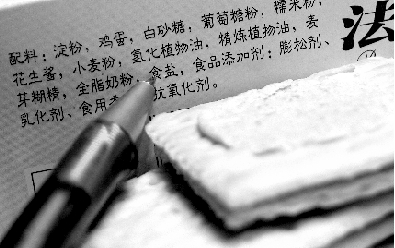 配料：淀粉，鸡蛋，白砂糖，葡萄糖粉，糯米粉，
花生酱，小麦粉，氢化植物油，精炼植物油，麦
芽糊精，全脂奶粉，食盐，食品添加剂：膨松剂、
乳化剂、食用 抗氧化剂。
法